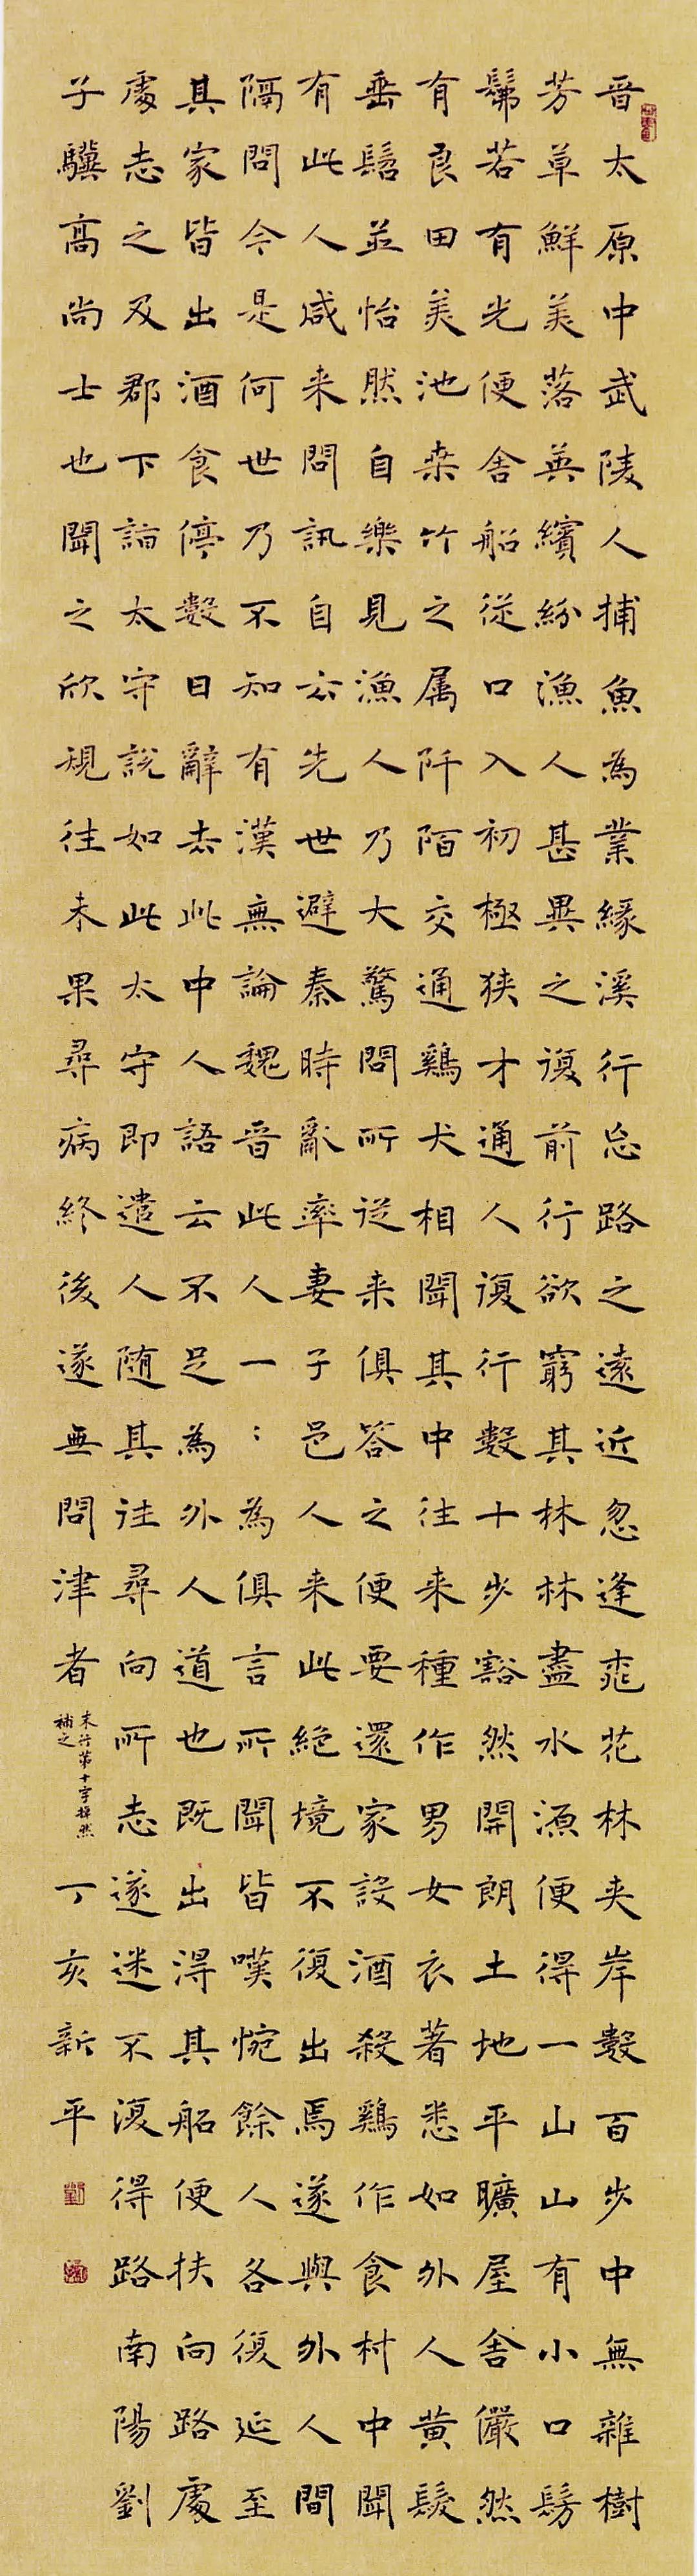 晉太原中武陵人捕魚為業緣溪行忘路之遠近忽逢桃花林夾岸數百步中無雜樹
芳草鮮美落英繽紛漁人甚異之復前行欲窮其林林盡水源便得一山山有小口髣
髴若有光便舍船從口入初極狹才通人復行數十步豁然開朗土地平曠屋舍儼然
有良田美池桑竹之属阡陌交通鷄犬相聞其中往来種作男女衣著悉如外人黄髮
垂髫並怡然自樂見漁人乃大驚問所從来俱答之便要還家設酒殺鷄作食村中聞
有此人咸来問訊自云先世避秦時亂率妻子邑人来此絶境不復出焉遂與外人間
隔問今是何世乃不知有漢無論魏晉此人一:為俱言所聞皆嘆惋餘人各復延至
其家皆出酒食停數日辭去此中人語云不足為外人道也既出得其船便扶向路處
處志之及郡下詣太守說如此太守即遣人随其往尋向所志遂迷不復得路南陽劉
子驥高尚士也聞之欣規往未果尋病終後遂無問津者
末行第十字掉然
補之
丁亥新平